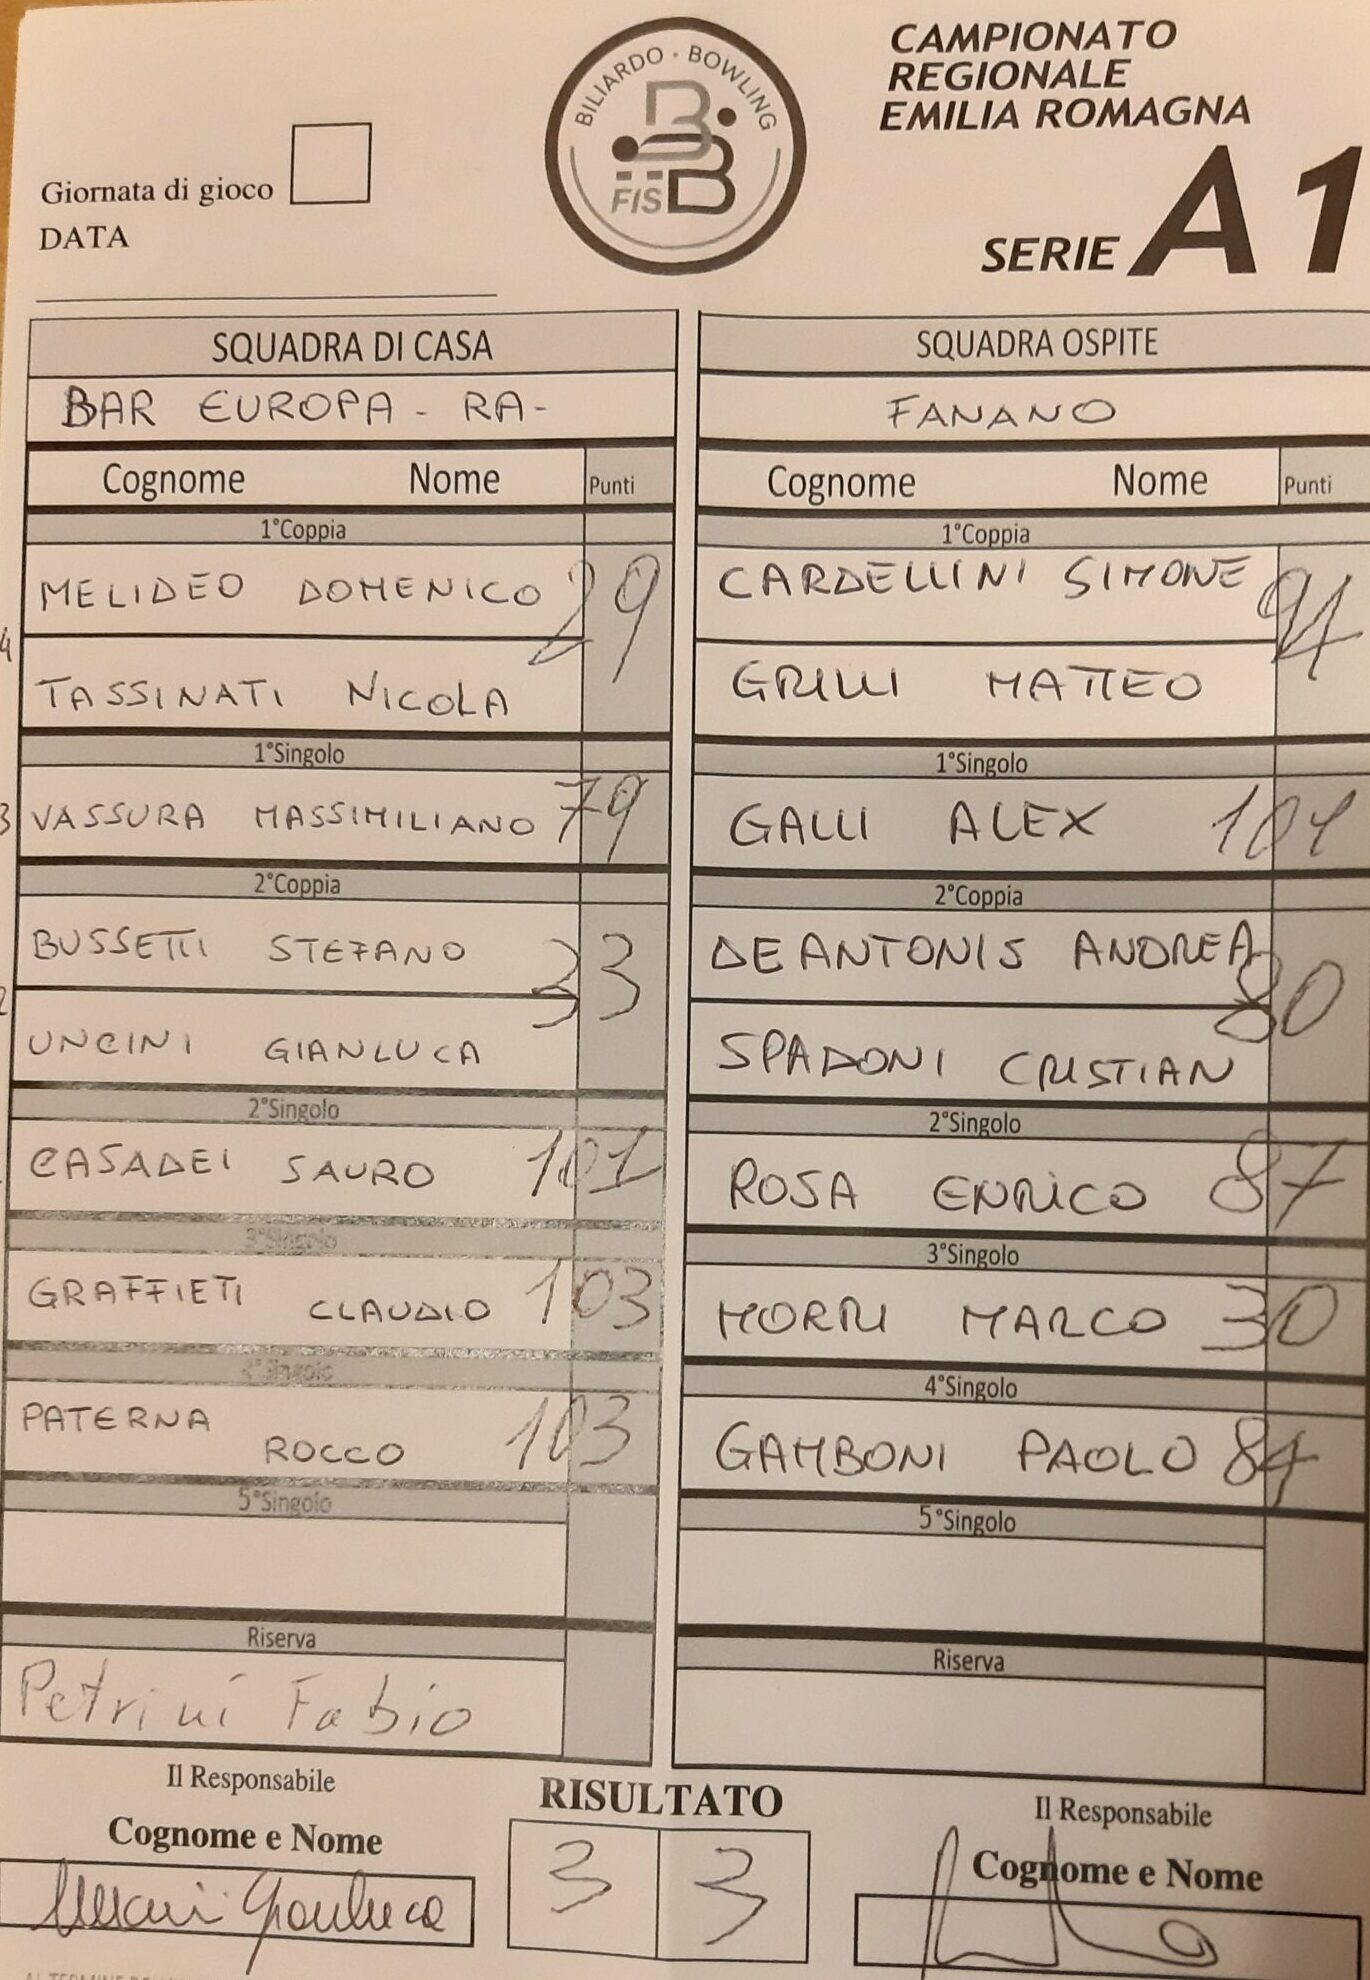 BILIARDO · BOWLING
FISBB
CAMPIONATO
REGIONALE
EMILIA ROMAGNA
SERIE A1
Giornata di gioco
DATA
SQUADRA DI CASA
BAR EUROPA - RA -
Cognome Nome Punti
1°Coppia
MELIDEO DOMENICO 29
TASSINATI NICOLA
1°Singolo
VASSURA MASSIMILIANO 79
2°Coppia
BUSSETTI STEFANO 33
UNCINI GIANLUCA
2°Singolo
CASADEI SAURO 101
3°Singolo
GRAFFIETI CLAUDIO 103
4°Singolo
PATERNA ROCCO 103
5°Singolo
Riserva
Petrini Fabio
SQUADRA OSPITE
FANANO
Cognome Nome Punti
1°Coppia
CARDELLINI SIMONE 94
GRILLI MATTEO
1°Singolo
GALLI ALEX 101
2°Coppia
DEANTONIS ANDREA 80
SPADONI CRISTIAN
2°Singolo
ROSA ENRICO 87
3°Singolo
MORRI MARCO 30
4°Singolo
GAMBONI PAOLO 84
5°Singolo
Riserva
Il Responsabile
Cognome e Nome
Uncini Gianluca
RISULTATO
3 3
Il Responsabile
Cognome e Nome